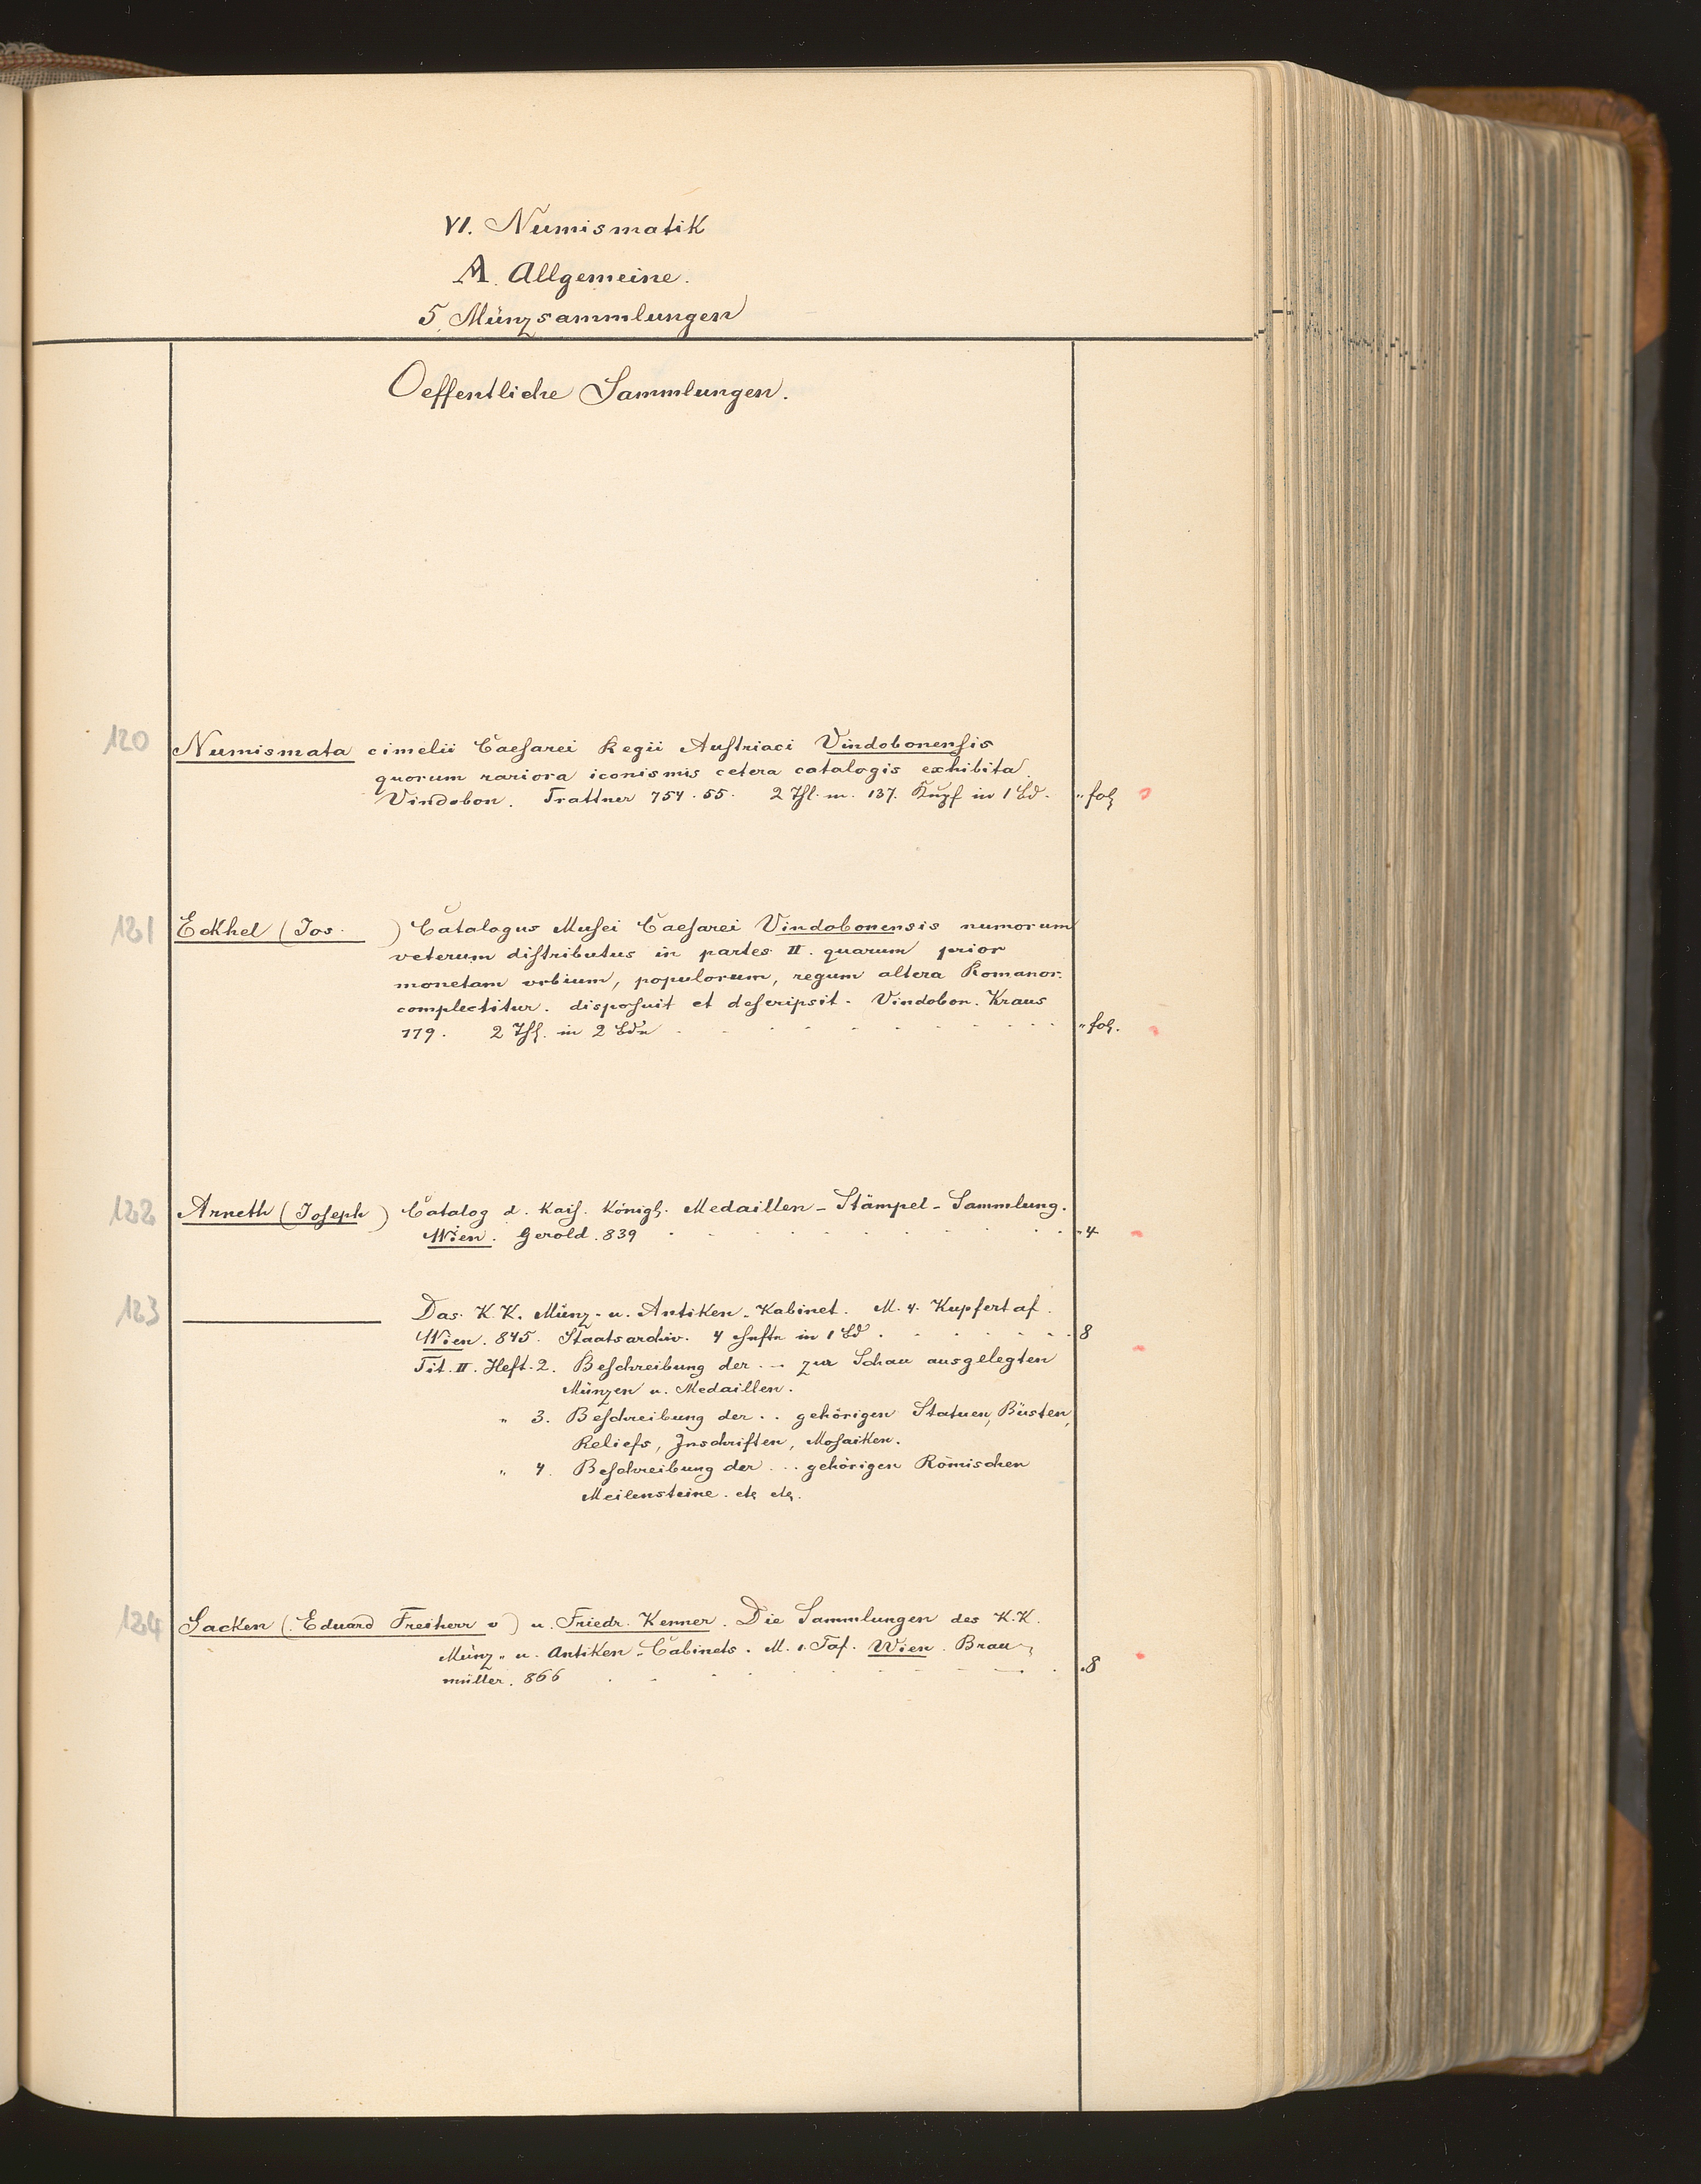 VI. Numismatik
A. Allgemeine.
5. Münzsammlungen
Oeffentliche Sammlungen.
120 Numismata cimelii Caesarei Regii Austriaci Vindobonensis
quorum rariora iconismis cetera catalogis exhibita.
Vindobon. Trattner 754.55. 2 Thl. m. 137. Kupf in 1 Bd. " fol
121 Eckhel (Jos. ) Catalogus Musei Caesarei Vindobonensis numorum
veterum distributus in partes II. quarum prior
monetam urbium, populorum, regum altera Romanor.
complectitur. disposuit et descripsit. Vindobon. Kraus
779. 2 Thl. in 2 Bdn " fol.
122 Arneth (Joseph) Catalog d. Kais. Königl. Medaillen-Stämpel-Sammlung.
Wien. Gerold. 839 " 4
123 Das K.K. Münz- u. Antiken-Kabinet. M. 4. Kupfertaf.
Wien. 845. Staatsarchiv. 4 Hefte in 1 Bd. 8
Tit. II. Heft. 2. Beschreibung der ... zur Schau ausgelegten
Münzen u. Medaillen.
" 3. Beschreibung der .. gehörigen Statuen, Büsten,
Reliefs, Inschriften, Mosaiken.
" 4. Beschreibung der ... gehörigen Römischen
Meilensteine. etc etc.
124 Sacken (Eduard Freiherr v) u. Friedr. Kenner. Die Sammlungen des K.K.
Münz- u. Antiken-Cabinets. M. 1. Taf. Wien. Brau-
müller. 866 . 8